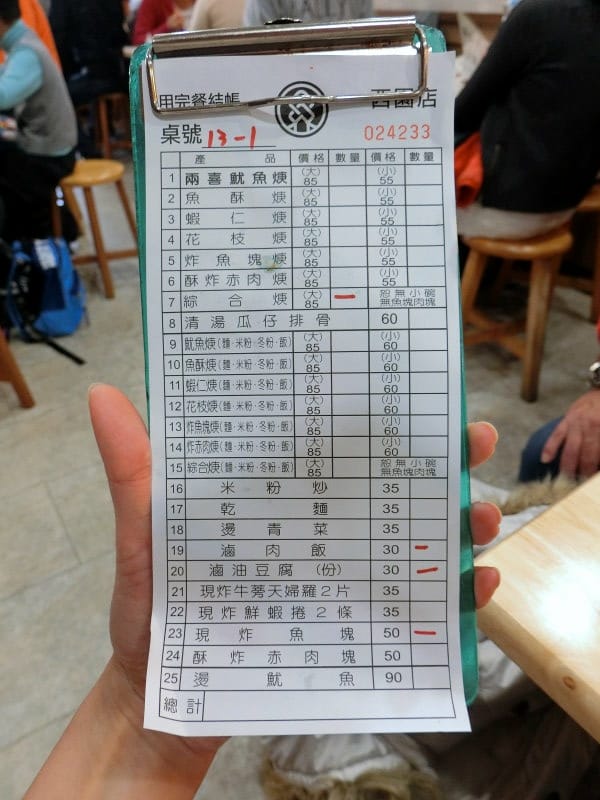 用完餐結帳 西園店
桌號 13-1 024233
產品 價格 數量 價格 數量
1 兩喜魷魚焿 (大)85 (小)55
2 魚酥焿 (大)85 (小)55
3 蝦仁焿 (大)85 (小)55
4 花枝焿 (大)85 (小)55
5 炸魚塊焿 (大)85 (小)55
6 酥炸赤肉焿 (大)85 (小)55
7 綜合焿 (大)85 一 恕無小碗 無魚塊肉塊
8 清湯瓜仔排骨 60
9 魷魚焿(麵·米粉·冬粉·飯) (大)85 (小)60
10 魚酥焿(麵·米粉·冬粉·飯) (大)85 (小)60
11 蝦仁焿(麵·米粉·冬粉·飯) (大)85 (小)60
12 花枝焿(麵·米粉·冬粉·飯) (大)85 (小)60
13 炸魚塊焿(麵·米粉·冬粉·飯) (大)85 (小)60
14 炸赤肉焿(麵·米粉·冬粉·飯) (大)85 (小)60
15 綜合焿(麵·米粉·冬粉·飯) (大)85 恕無小碗 無魚塊肉塊
16 米粉炒 35
17 乾麵 35
18 燙青菜 35
19 滷肉飯 30 一
20 滷油豆腐(份) 30 一
21 現炸牛蒡天婦羅2片 35
22 現炸鮮蝦捲2條 35
23 現炸魚塊 50 一
24 酥炸赤肉塊 50
25 燙魷魚 90
總計